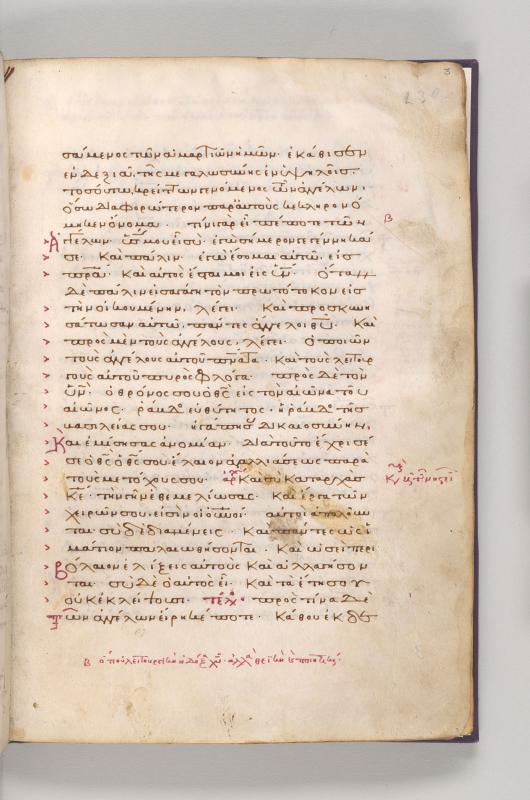 3
230
σάμενος τῶν ἁμαρτιῶν ἡμῶν· ἐκάθισεν
ἐν δεξιᾷ, τῆς μεγαλωσύνης ἐν ὑψηλοῖς·
τοσούτω, κρείττων γενόμενος τῶν ἀγγέλων,
ὅσω διαφορώτερον παρ' αὐτοὺς κεκληρονό
μηκεν ὄνομα· τίνι γὰρ εἶπέ ποτε τῶν
ἀγγέλων· υἱός μου εἶ σύ· ἐγὼ σήμερον γεγέννηκά
σε· καὶ πάλιν· ἐγὼ ἔσομαι αὐτῶ, εἰς
πρα· καὶ αὐτὸς ἔσται μοι εἰς υν· ὅταν
δὲ πάλιν εἰσαγάγη τὸν πρωτότοκον εἰς
τὴν οἰκουμένην, λέγει· καὶ προσκυνη
σάτωσαν αὐτῶ, πάντες ἄγγελοι θυ· καὶ
πρὸς μὲν τοὺς ἀγγέλους, λέγει· ὁ ποιῶν
τοὺς ἀγγέλους αὐτοῦ πνατα· καὶ τοὺς λειτουρ
γοὺς αὐτοῦ πυρὸς φλόγα· πρὸς δὲ τὸν
υν· ὁ θρόνος σου ὁ θς εἰς τὸν αἰῶνα τοῦ
αἰῶνος· ῥάβδος εὐθύτητος· ἡ ῥάβδος τῆς
βασιλείας σου· ἠγάπησας δικαιοσύνην,
καὶ ἐμίσησας ἀνομίαν· διὰ τοῦτο ἔχρισέ
σε ὁ θς ὁ θς σου ἔλαιον ἀγαλλιάσεως παρὰ
τοὺς μετόχους σου· ἀρχ καὶ σὺ καταρχὰς
κε· τὴν γῆν ἐθεμελίωσας· καὶ ἔργα τῶν
χειρῶν σου, εἰσὶν οἱ οὐνοί· αὐτοὶ ἀπολοῦν
ται· σὺ δὲ διαμένεις· καὶ πάντες ὡς ἱ
μάτιον παλαιωθήσονται· καὶ ὡσεὶ περι
βόλαιον ἑλίξεις αὐτοὺς καὶ ἀλλαγήσον
ται· σὺ δὲ ὁ αὐτὸς εἶ· καὶ τὰ ἔτη σου
οὐκ ἐκλείψουσι· τέλος πρὸς τίνα δὲ
τῶν ἀγγέλων εἴρηκέ ποτε· κάθου ἐκ δε